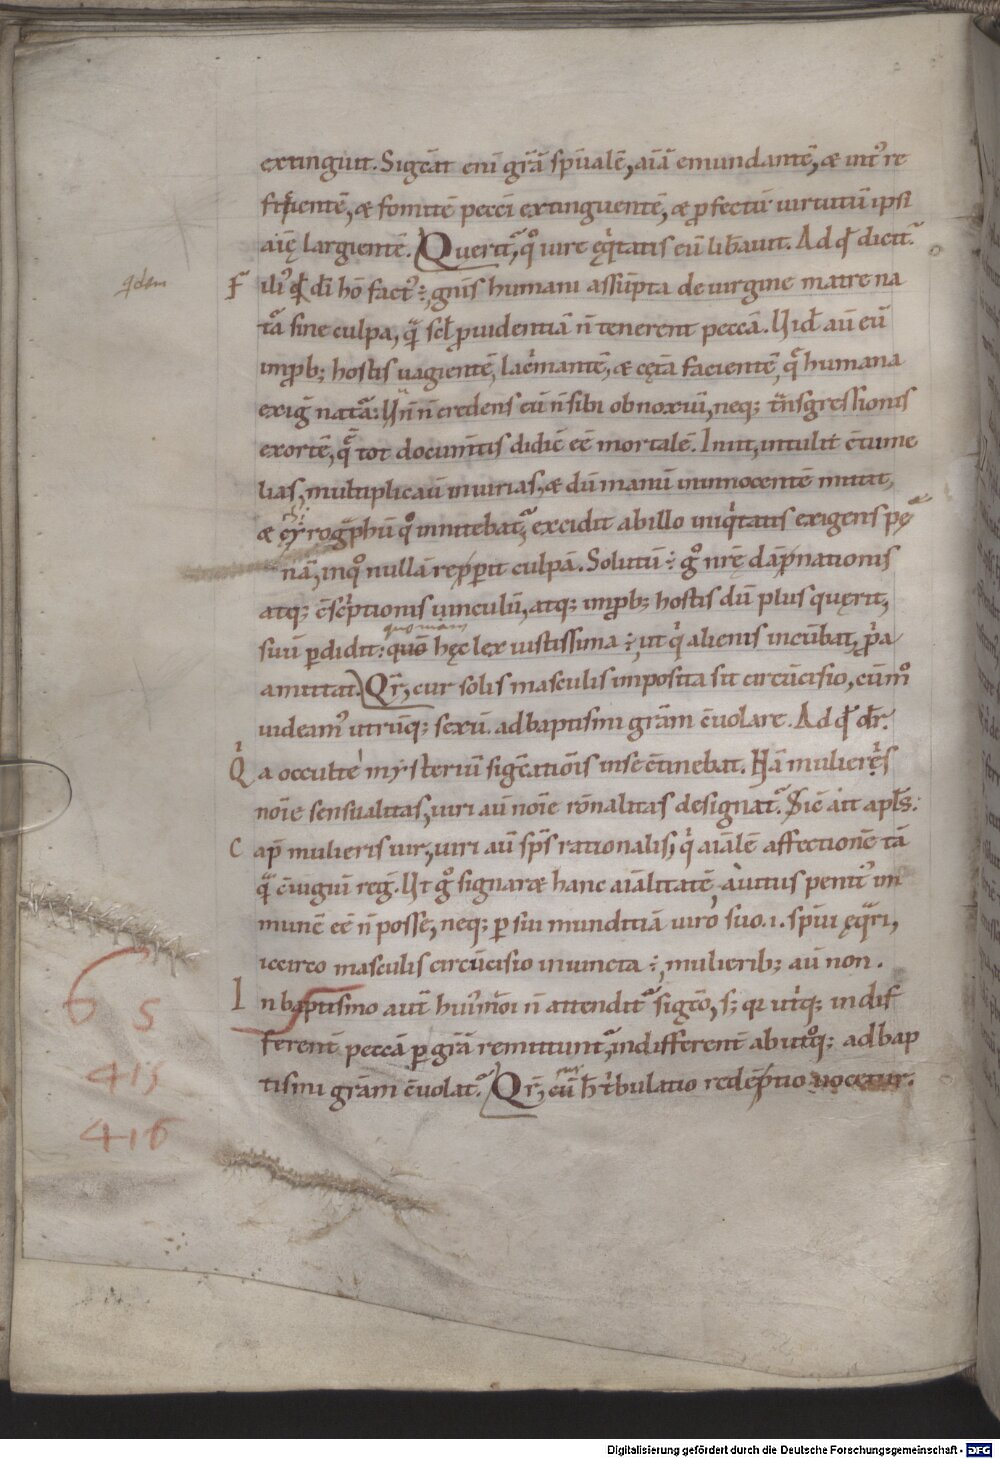 extinguit. Sigcāt eni grā spualē, aiā emundantē, & int᷑ re
ficientē, & fomitē pecci extinguentē, & pfectū uirtutū ipsi
aię largientē. Querit᷑, qͦ iure eqͥtatis eū libauit. Ad qđ dicit᷑.
qdem
F ili᷒ qđ di hō fact᷒ ; gnis humani assūpta de uirgine matre na
tā sine culpa, qͣ scđ puidentiā n̄ tenerent peccā. Hid aū eū
impb; hostis uagientē, lacͥmantē, & cętā facientē, qͣ humana
exiḡ natā: Hn̄ n̄ credens eū n̄ sibi obnoxiū, neq; tͣnsgressionis
exortē, qͣ tot documtis didic̄ eē mortalē. Inuit, intulit c̄tume
lias, multiplicau iniurias, & dū manū in innocentē mittat,
& cyrogͣphū qͦ innitebat᷑, excidit ab illo iniqͥtatis exigens pę
nā, in qͦ nullā repperit culpā. Solutū ; gͦ nrę dāpnationis
atq; c̄scͥptionis uinculū, atq; impb; hostis dū plus quęrit,
quoniam
suū pdidit: quō hęc lex iustissima ; ut qͥ alienis incūbat, ppͥa
amittat. Qr̄, cur solis masculis imposita sit circūcisio, cūm᷒
uideam᷒ utrūq; sexū ad baptismi grām c̄uolare. Ad qđ dr̄.
Qͥ a occultē mysteriū sigc̄ationis in se c̄tinebat. Nā mulieris
noīe sensualitas, uiri aū noīe rōnalitas designat᷑. Sic̄ ait apl̄s:
C ap̄ mulieris uir, uiri aū sp̄s rationalis, qͥ aiālē affectionē tā
qͣ c̄iugiū reḡ. Ut gͦ signaret hanc aiālitatē a uitiis penit᷒ in
munē eē n̄ posse, neq; p sui munditiā uiro suo .i. spiui ęqͣri,
iccirco masculis circūcisio iniuncta ; mulierib; aū non.
I n baptismo aut̄ hui᷒moi n̄ attendit᷑ sigc̄o, s; qr ut᷑q; indif
ferent̄ peccā p grā remittunt᷑, indifferent̄ ab ut᷑q; ad bap
tismi grām c̄uolat᷑. Qr̄, cū h̄ t͛bulatio redēptio uocetur.
6 5
415
416
Digitalisierung gefördert durch die Deutsche Forschungsgemeinschaft - DFG